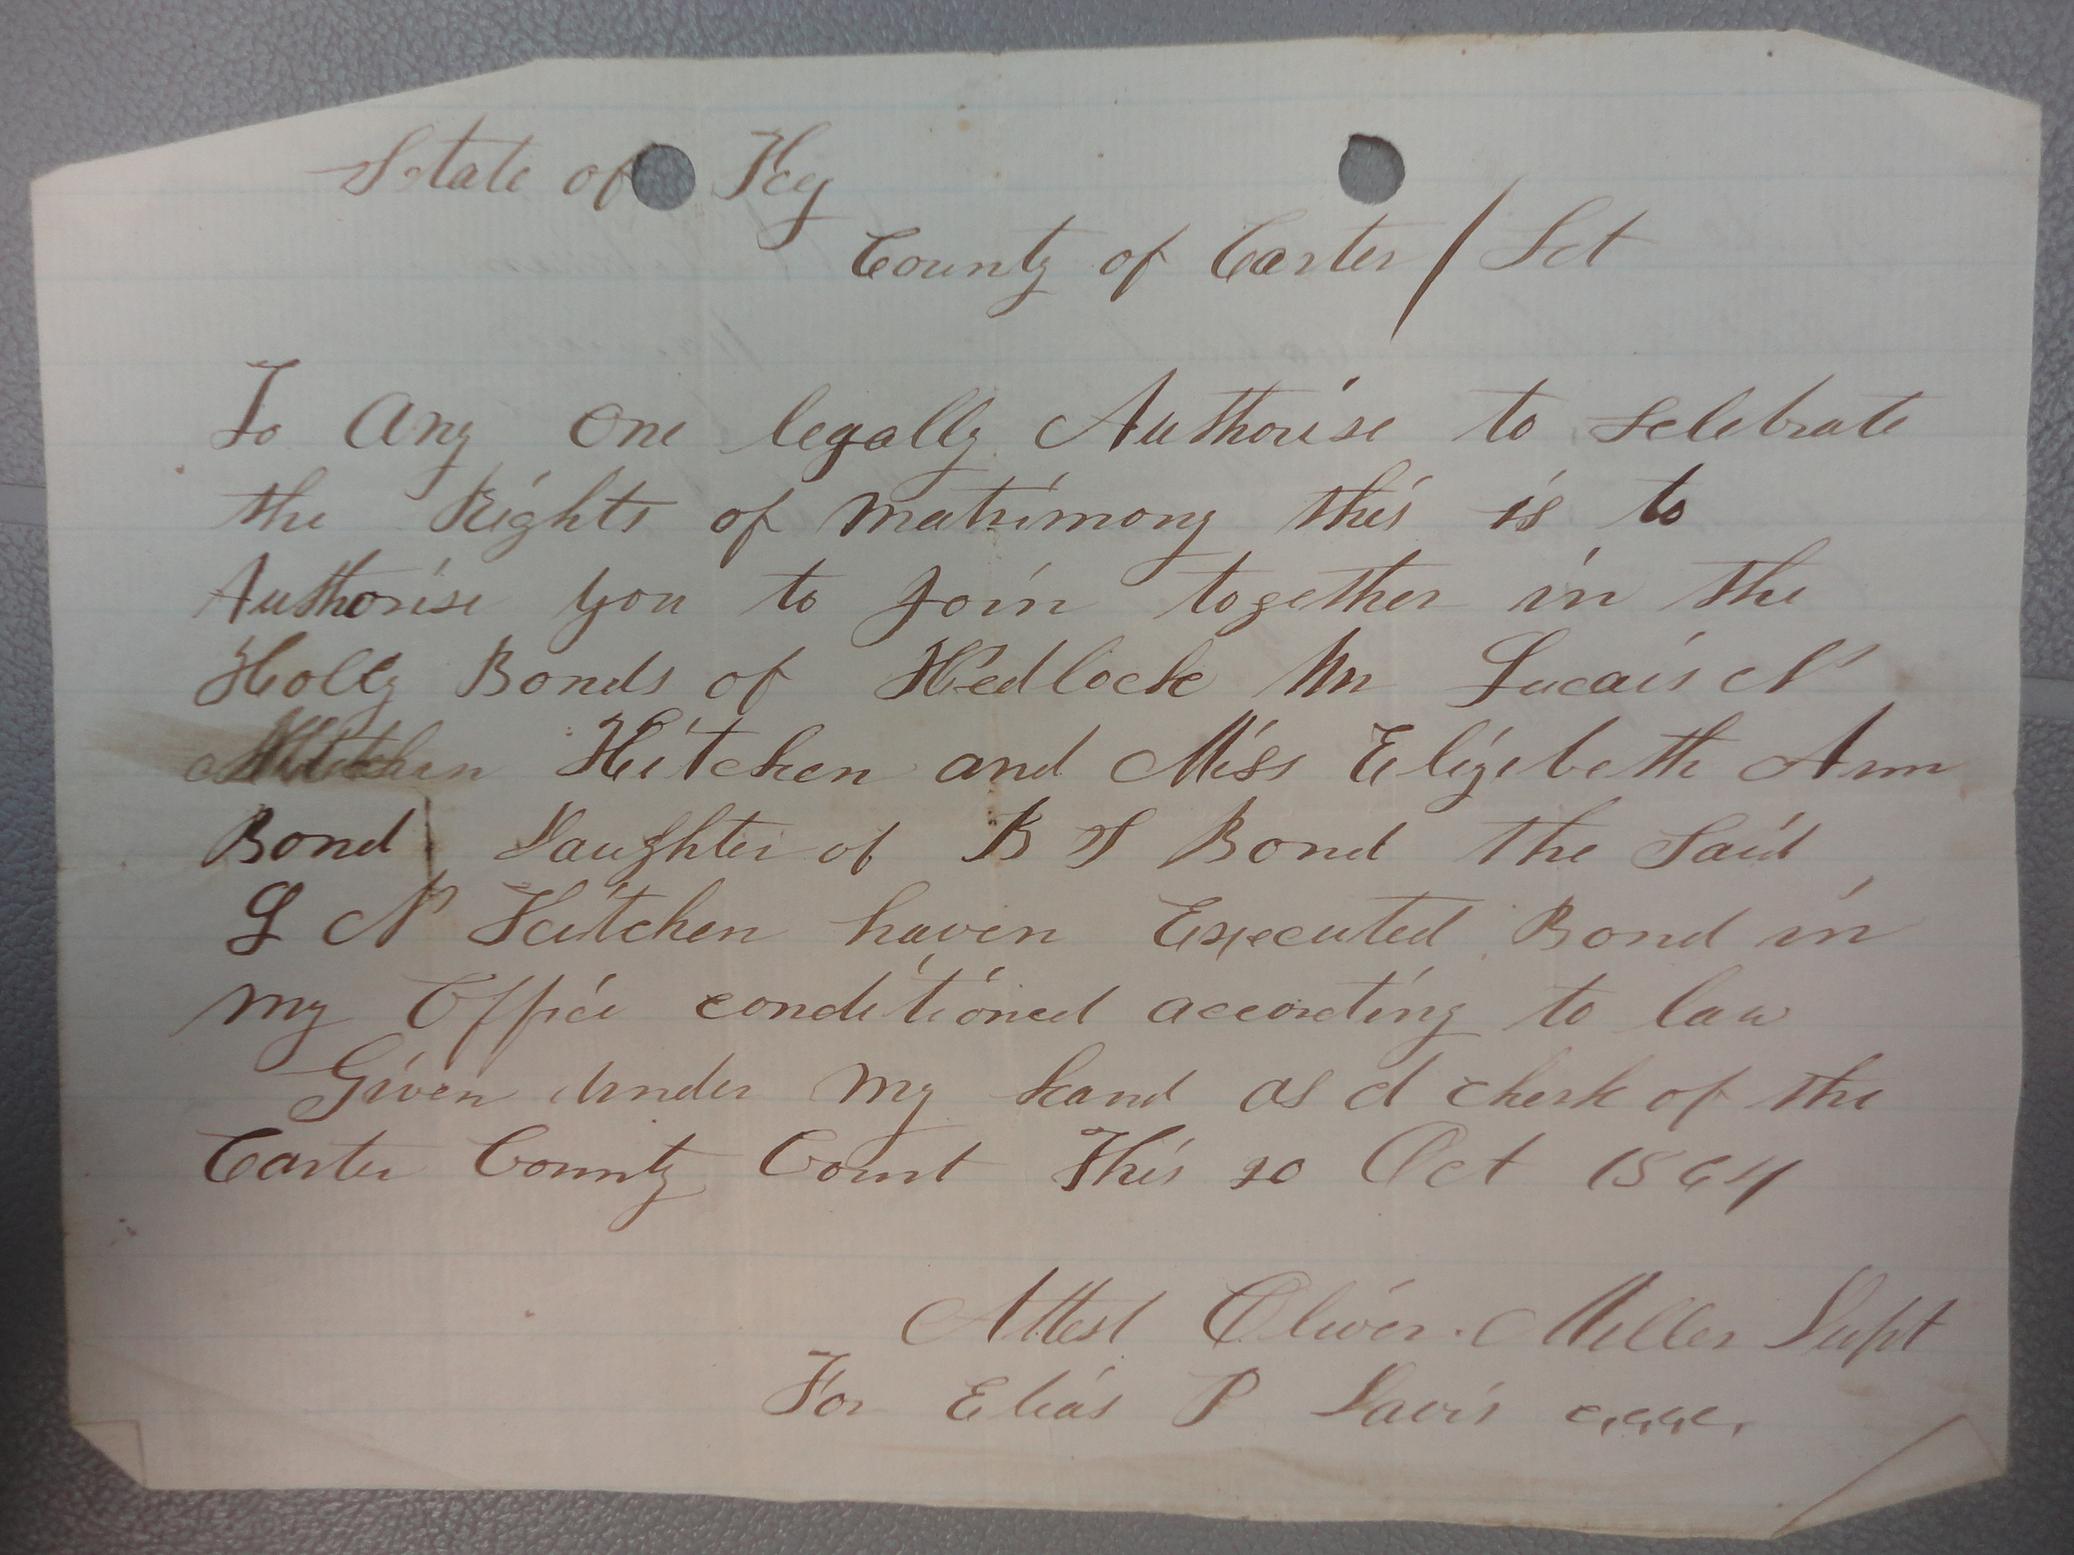 State of Ky
County of Carter / Sct
To Any One legally Authorise to selebrate
the Rights of Matrimony this is to
Authorise you to Join together in the
Holly Bonds of Wedlock Mr Lucais N
Kitchen and Miss Elizebeth Ann
Bond Daughter of B S Bond the Said
L N Kitchen haven Executed Bond in
my Office conditioned according to law
Given under my hand as d clerk of the
Carter County Court This 20 Oct 1864
Attest Oliver Miller Dept
For Elias P Davis c.c.c.c.